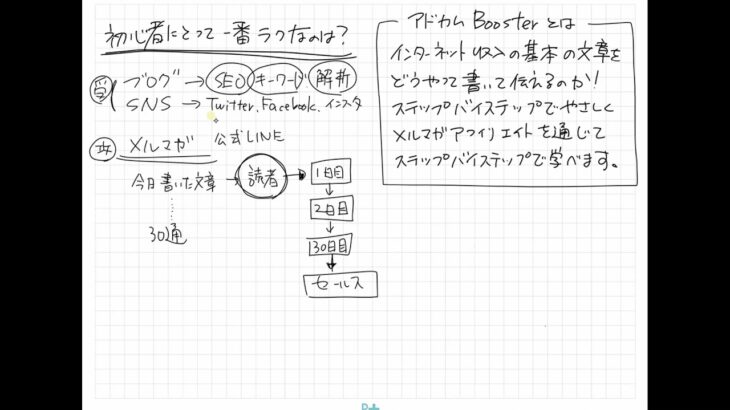 初心者にとって一番ラクなのは?
受 ブログ → SEO キーワード 解析
SNS → Twitter、Facebook、インスタ
メルマガ 公式LINE
今日書いた文章 → 読者 → 1日目
2日目
30通
30日目
セールス
アドカム Boosterとは
インターネット収入の基本の文章を
どうやって書いて伝えるのか!
ステップバイステップでやさしく
メルマガアフィリエイトを通じて
ステップバイステップで学べます。